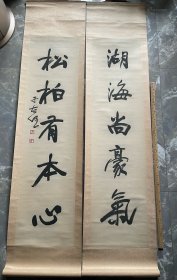 湖海尚豪氣
松柏有本心